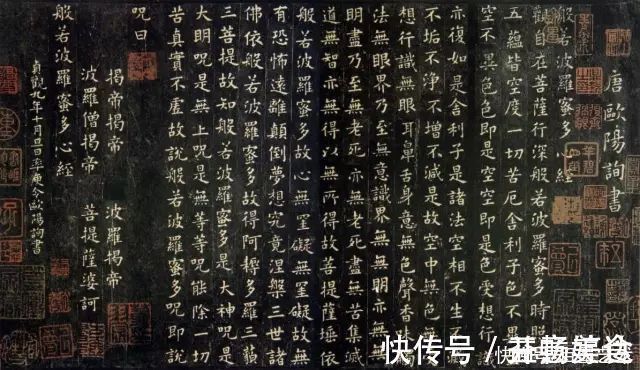 唐歐陽詢書
般若波羅蜜多心經
觀自在菩薩行深般若波羅蜜多時照
五蘊皆空度一切苦厄舍利子色不異
空空不異色色即是空空即是色受想行
亦復如是舍利子是諸法空相不生不
不垢不淨不增不減是故空中無色無
想行識無眼耳鼻舌身意無色聲香味
法無眼界乃至無意識界無無明亦無
明盡乃至無老死亦無老死盡無苦集滅
道無智亦無得以無所得故菩提薩埵依
般若波羅蜜多故心無罣礙無罣礙故無
有恐怖遠離顛倒夢想究竟涅槃三世諸
佛依般若波羅蜜多故得阿耨多羅三藐
三菩提故知般若波羅蜜多是大神呪是
大明呪是無上呪是無等等呪能除一切
苦真實不虛故說般若波羅蜜多呪即說
呪曰
揭帝揭帝 波羅揭帝
波羅僧揭帝 菩提薩婆訶
般若波羅蜜多心經
貞觀九年十月旦日率更令歐陽詢書
快传号 /